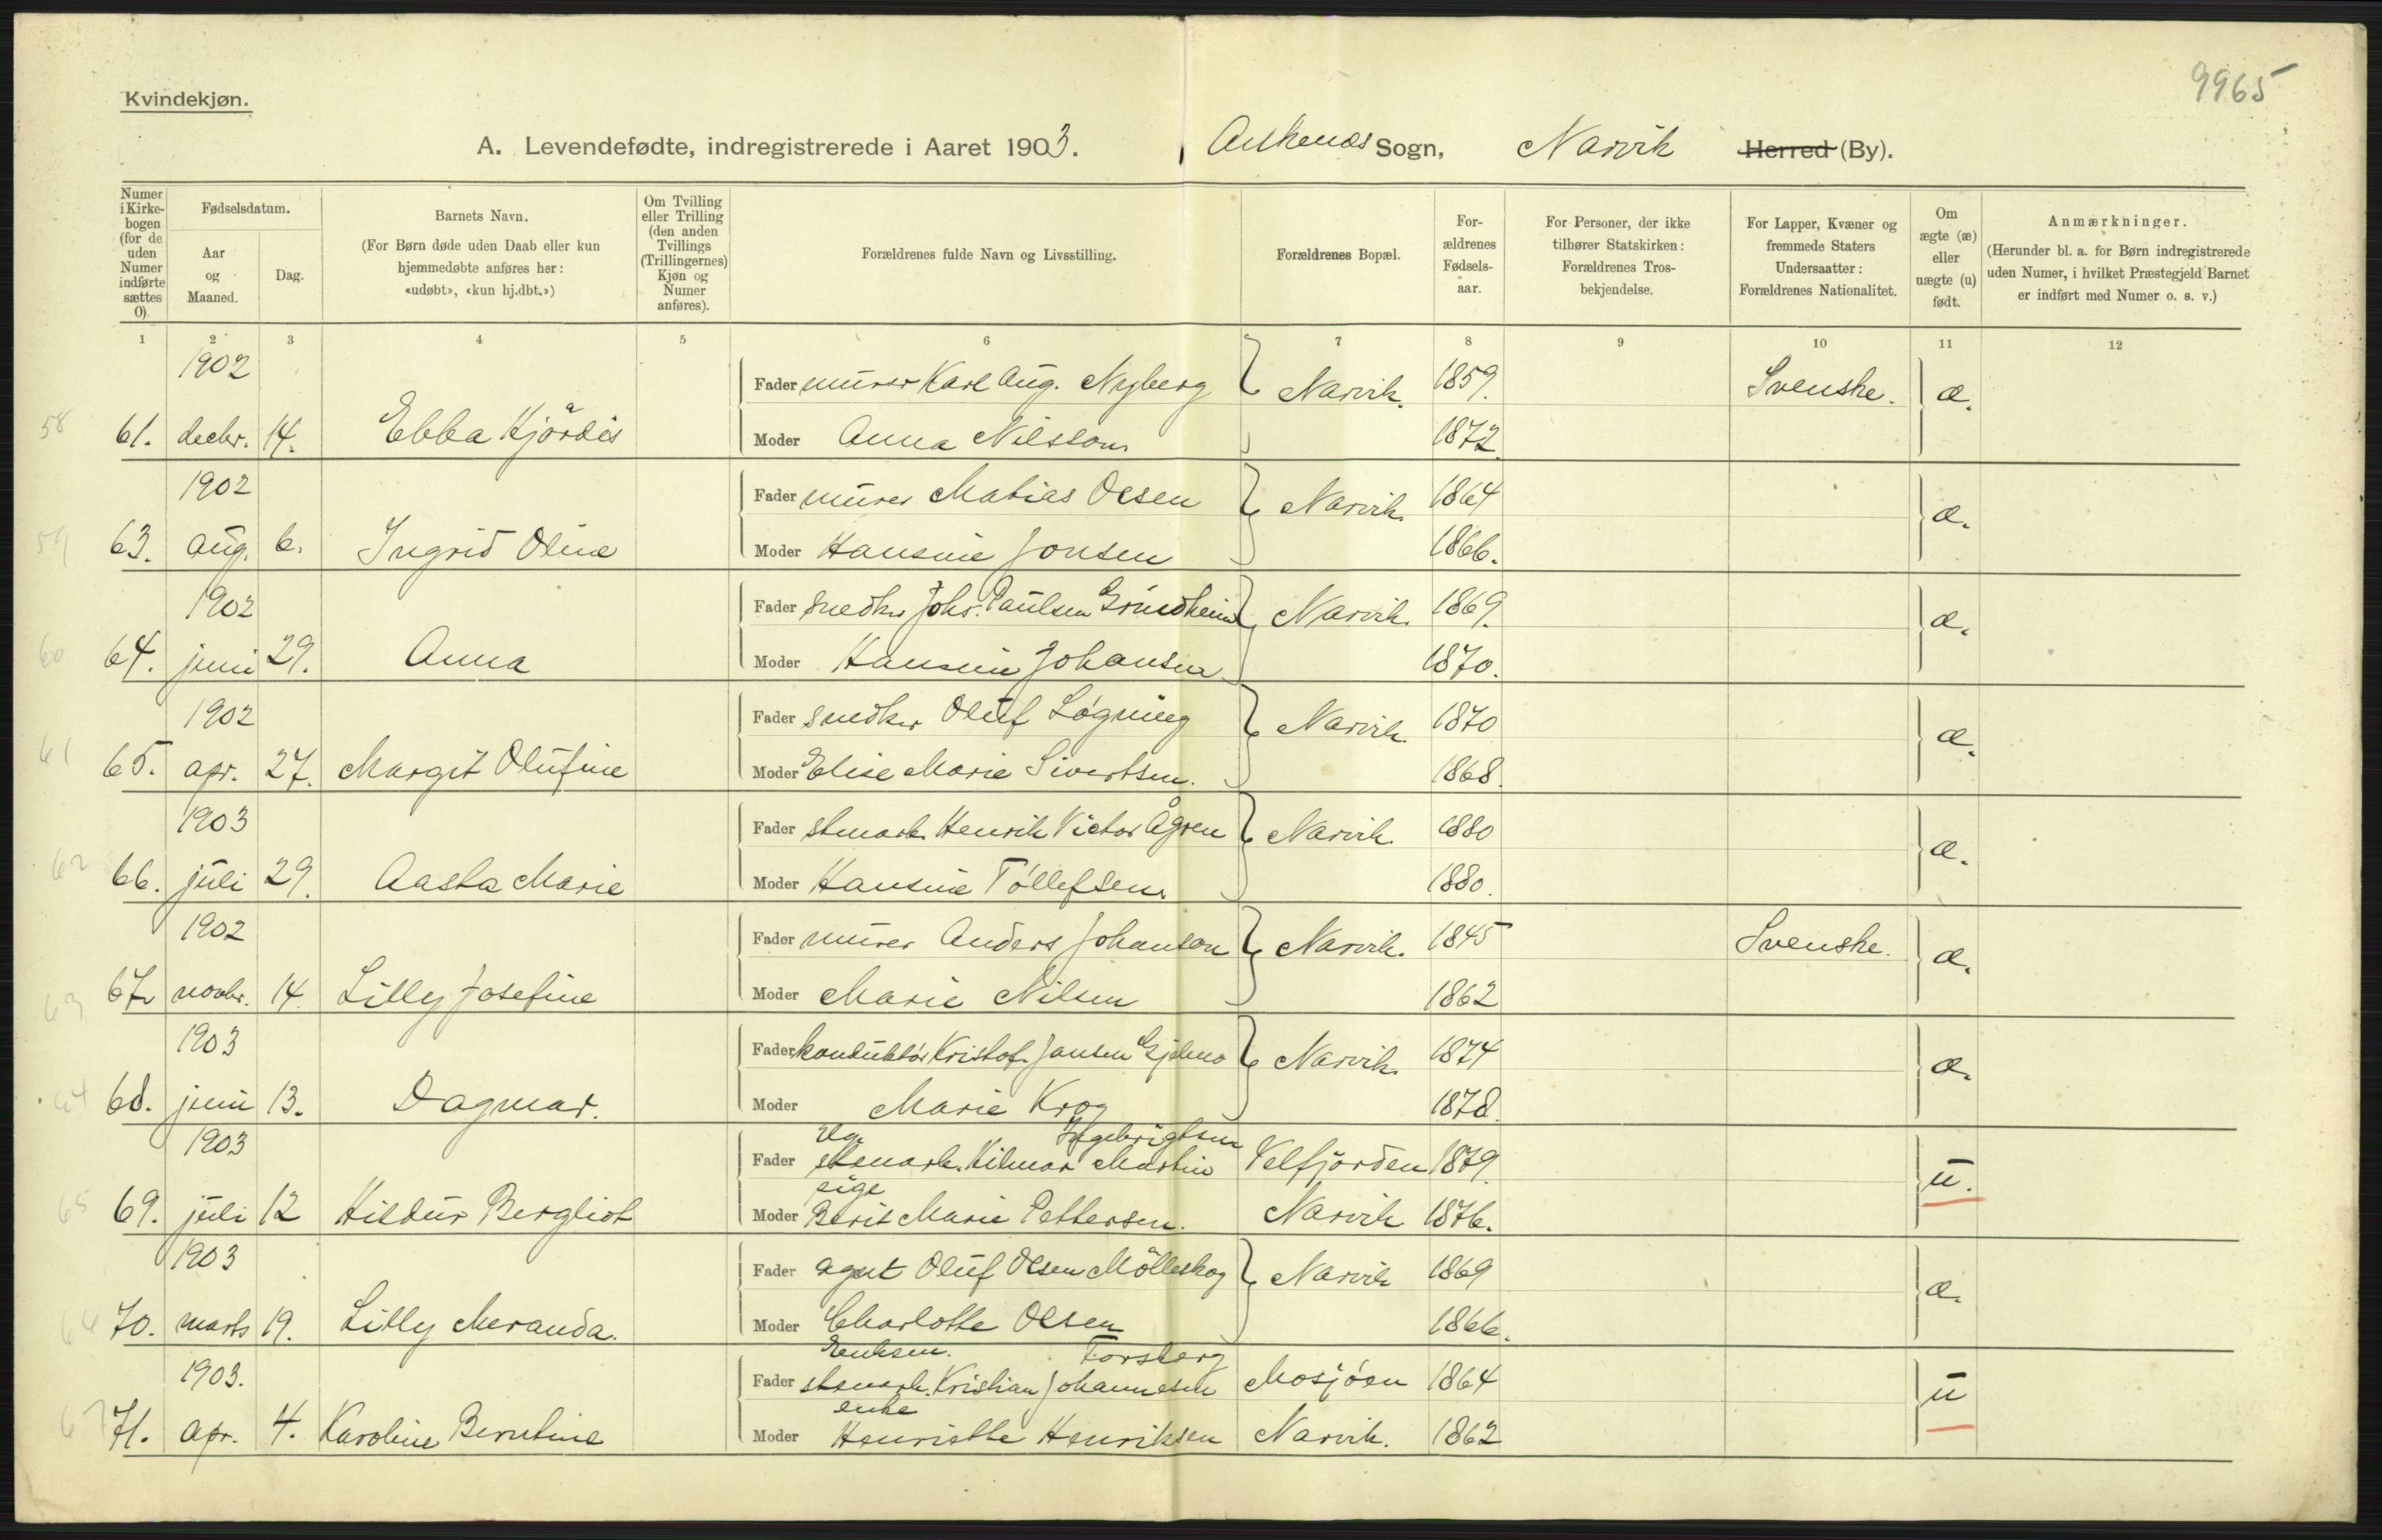 9965
Kvindekjøn.
A. Levendefødte, indregistrerede i Aaret 1903. Ankenæs Sogn, Narvik Herred (By).
Numer i Kirkebogen (for de uden Numer indførte sættes 0).
Fødselsdatum.
Aar og Maaned.
Dag.
Barnets Navn.
(For Børn døde uden Daab eller kun hjemmedøbte anføres her: «udøbt», «kun hj.dbt.»)
Om Tvilling eller Trilling (den anden Tvillings (Trillingernes) Kjøn og Numer anføres).
Forældrenes fulde Navn og Livsstilling.
Forældrenes Bopæl.
Forældrenes Fødselsaar.
For Personer, der ikke tilhører Statskirken: Forældrenes Trosbekjendelse.
For Lapper, Kvæner og fremmede Staters Undersaatter: Forældrenes Nationalitet.
Om ægte (æ) eller uægte (u) født.
Anmærkninger.
(Herunder bl. a. for Børn indregistrerede uden Numer, i hvilket Præstegjeld Barnet er indført med Numer o. s. v.)
1 2 3 4 5 6 7 8 9 10 11 12
1902 Fader murer Karl Aug. Nyberg Narvik. 1859. Svenske. æ.
58 61. decbr. 14. Ebba Hjördis Moder Anna Nilsson 1872.
1902 Fader murer Matias Olsen Narvik. 1864 æ.
59 63. aug. 6. Ingrid Oline Moder Hansine Jonsen 1866.
1902 Fader snedker Johs. Paulsen Grundheim Narvik. 1869. æ.
60 64. juni 29. Anna Moder Hansine Johansen 1870.
1902 Fader snedker Oluf Løgning Narvik. 1870 æ.
61 65. apr. 27. Margit Olufine Moder Elise Marie Sivertsen. 1868.
1903 Fader stenarb. Henrik Victor Ågren Narvik. 1880 æ.
62 66. juli 29. Aasta Marie Moder Hansine Tøllefsen. 1880.
1902 Fader murer Anders Johanson Narvik. 1845 Svenske. æ.
63 67. novbr. 14. Lilly Josefine Moder Marie Nilsen 1862
1903 Fader konduktør Kristof. Jansen Gjelmo Narvik. 1874 æ.
64 68. juni 13. Dagmar. Moder Marie Krog 1878.
1903 Ug. Ingebrigtsen
Fader stenarb. Hilmar Martin Velfjorden 1879. u.
65 69. juli 12 Hildur Bergliot pige
Moder Berit Marie Pettersen. Narvik 1876.
1903 Fader agent Oluf Olsen Mölleskog Narvik 1869 æ.
66 70. marts 19. Lilly Meranda. Moder Charlotte Olsen 1866.
1903. Forsberg
Fader stenarb. Kristian Johannesen Mosjøen 1864 u
67 71. apr. 4. Karoline Berntine enke
Moder Henriette Henriksen Narvik. 1862